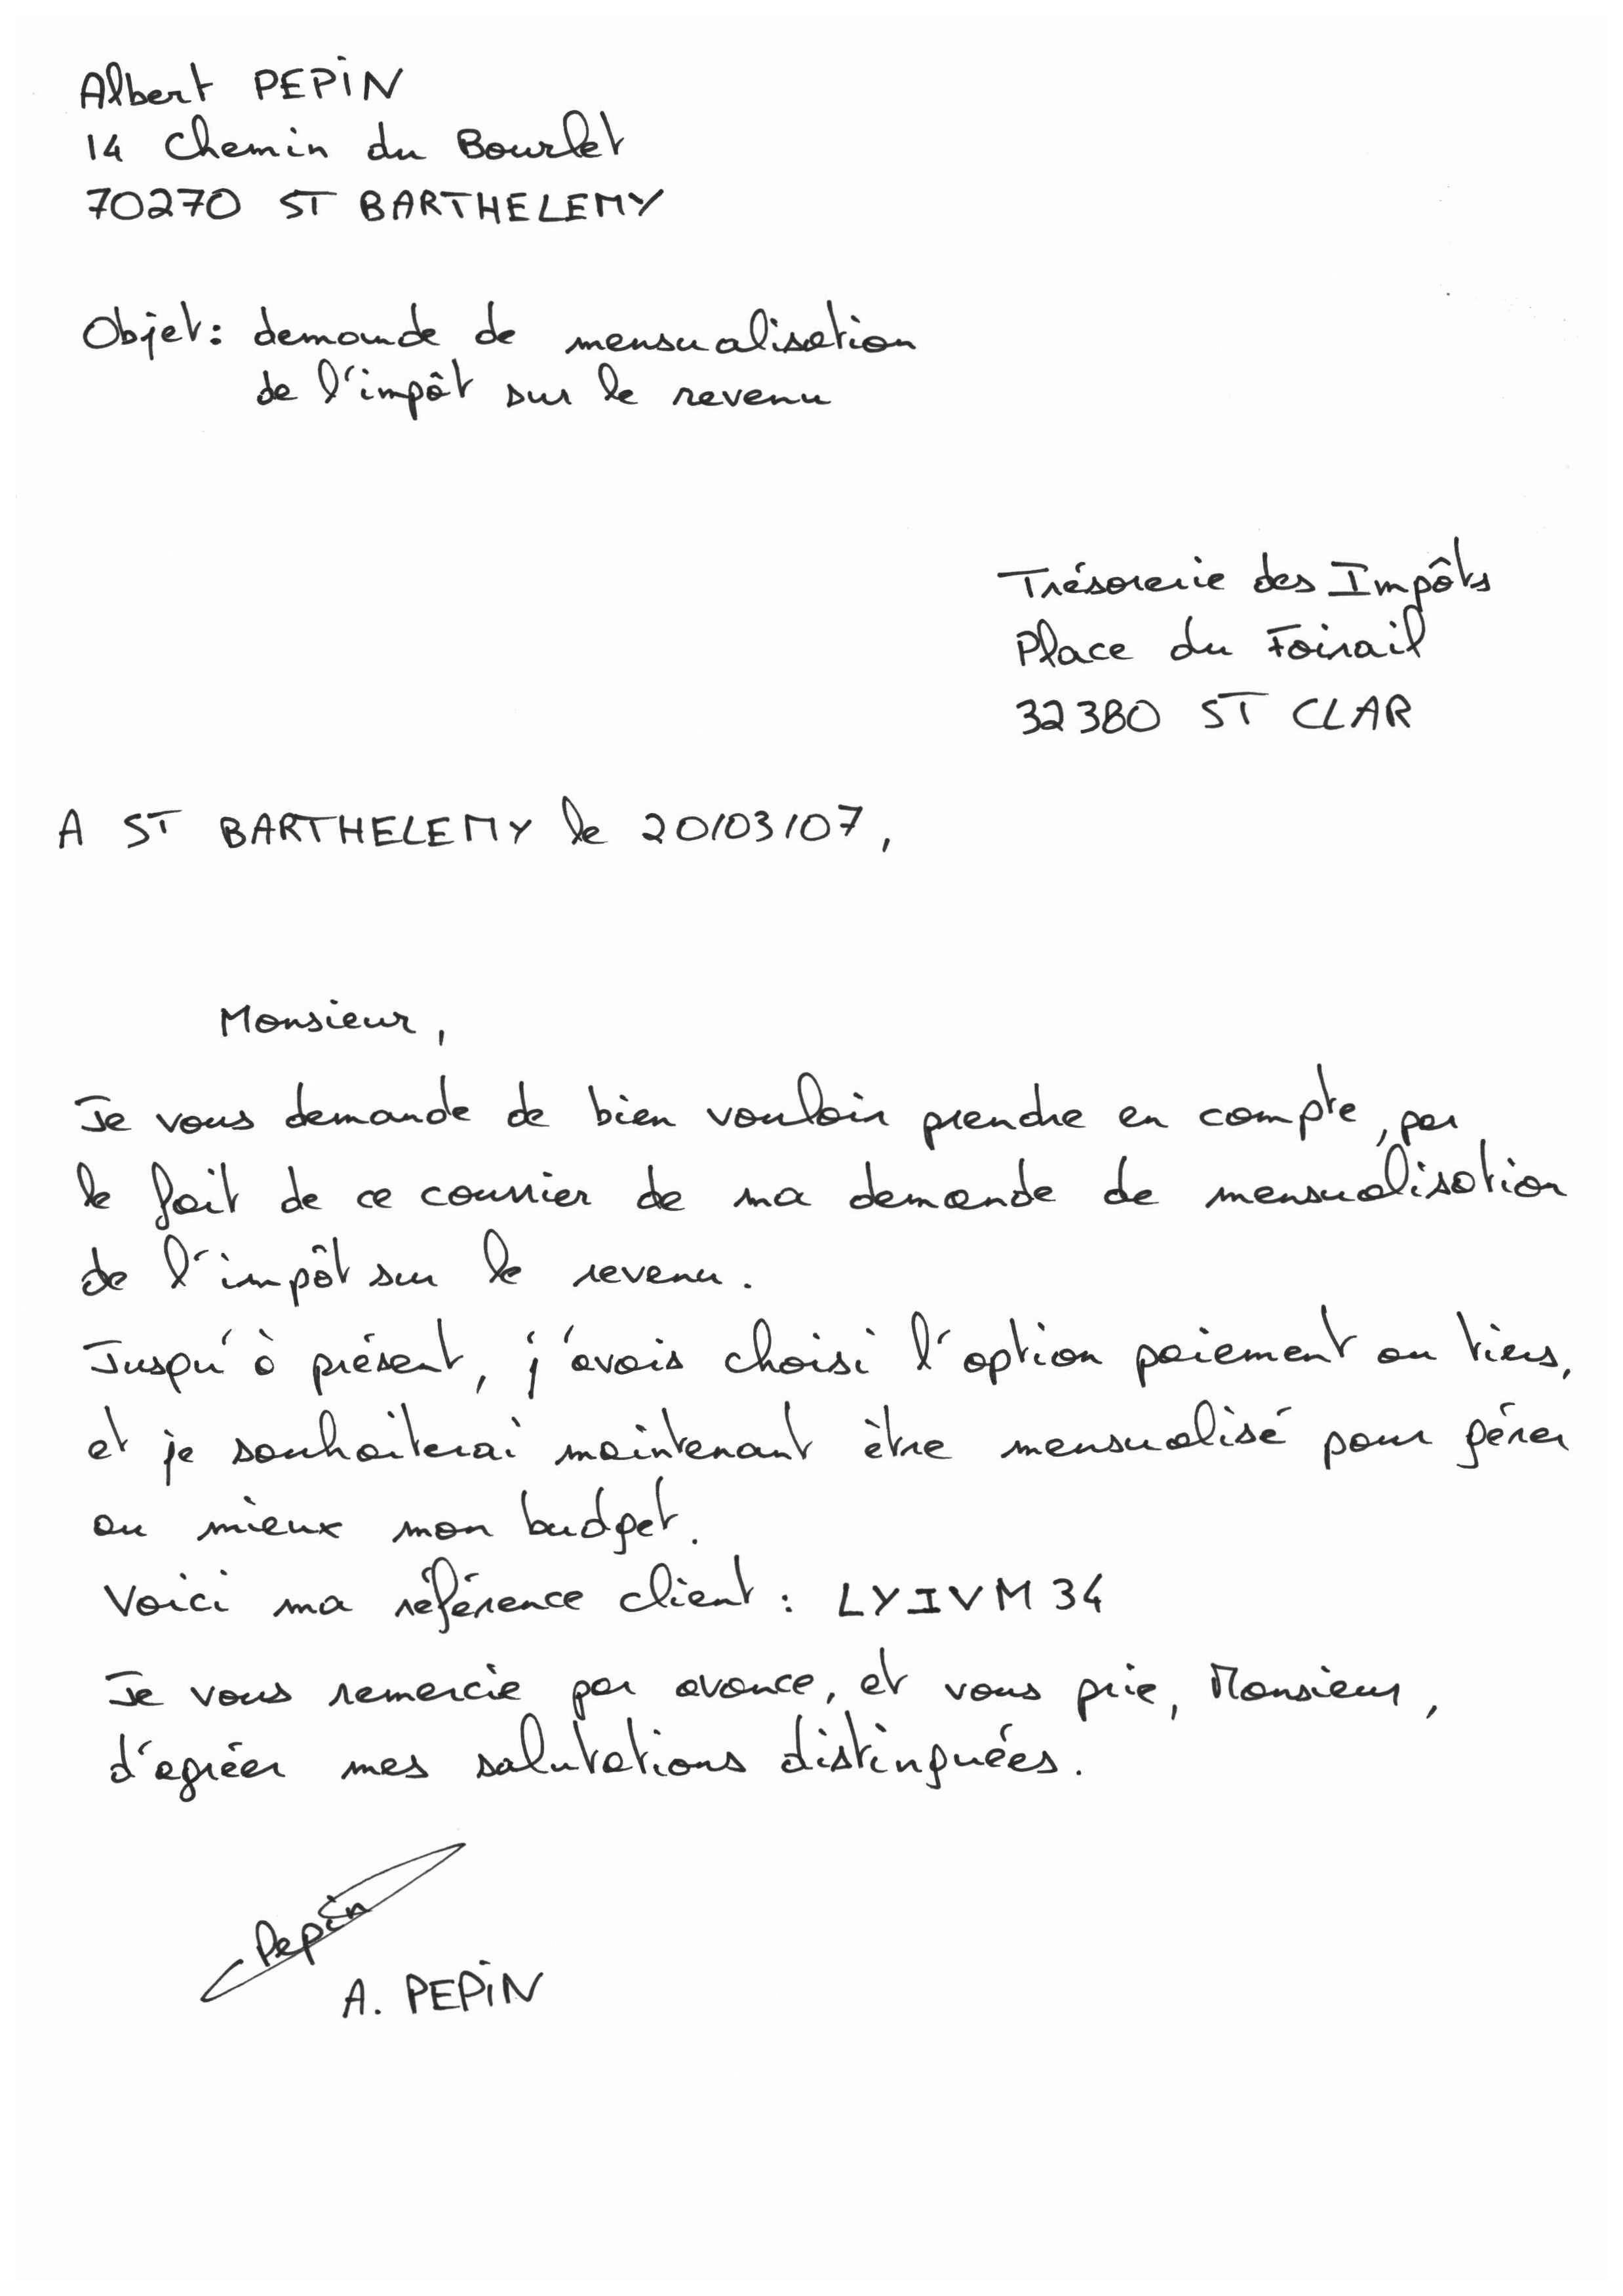 Albert PEPIN
14 Chemin du Bourlet
70270 ST BARTHELEMY
Objet : demande de mensualisation
de l'impôt sur le revenu
Trésorerie des Impôts
Place du Foirail
32380 ST CLAR
A ST BARTHELEMY le 20/03/07,
Monsieur,
Je vous demande de bien vouloir prendre en compte, par
le fait de ce courrier de ma demande de mensualisation
de l'impôt sur le revenu.
Jusqu'à présent, j'avais choisi l'option paiement au tiers,
et je souhaiterai maintenant être mensualisé pour gérer
au mieux mon budget.
Voici ma référence client : LYIVM34
Je vous remercie par avance, et vous prie, Monsieur,
d'agréer mes salutations distinguées.
Pepin
A. PEPIN